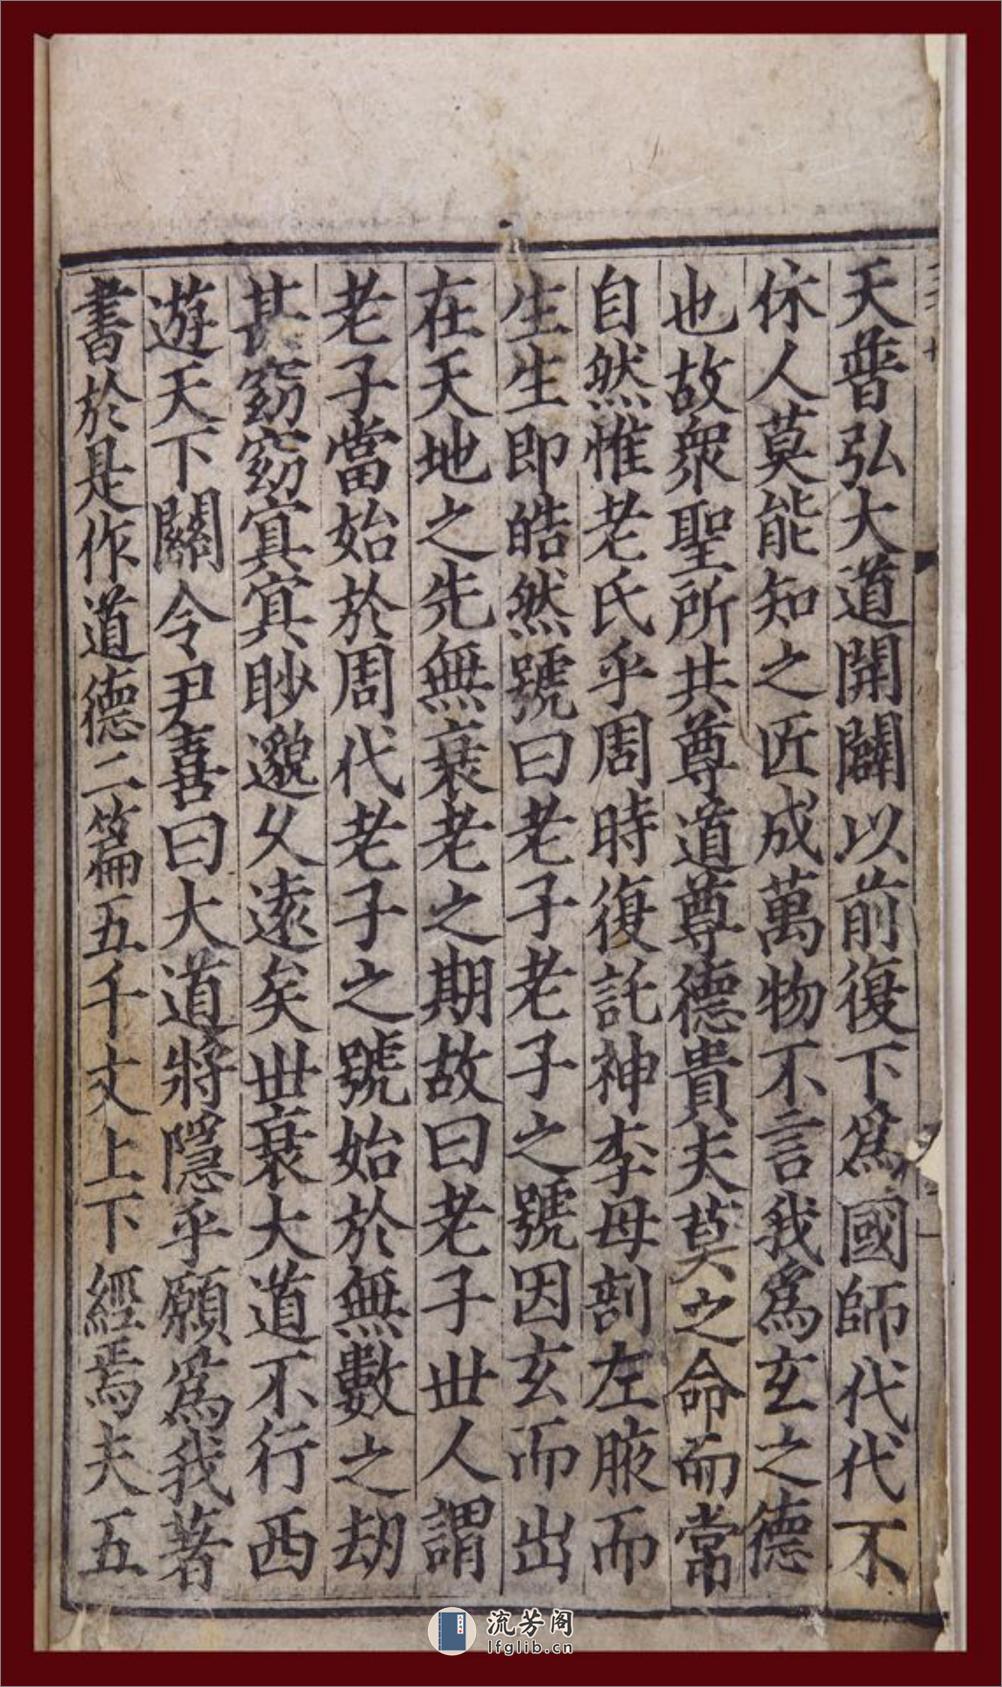 天普弘大道開闢以前復下爲國師代代不
休人莫能知之匠成萬物不言我爲玄之德
也故衆聖所共尊道尊德貴夫莫之命而常
自然惟老氏乎周時復託神李母剖左腋而
生生即皓然號曰老子老子之號因玄而出
在天地之先無衰老之期故曰老子世人謂
老子當始於周代老子之號始於無數之劫
甚窈窈寘寘眇邈久遠矣世衰大道不行西
遊天下關令尹喜曰大道將隱乎願爲我著
書於是作道德二篇五千文上下經焉夫五
流芳阁
lfglib.cn